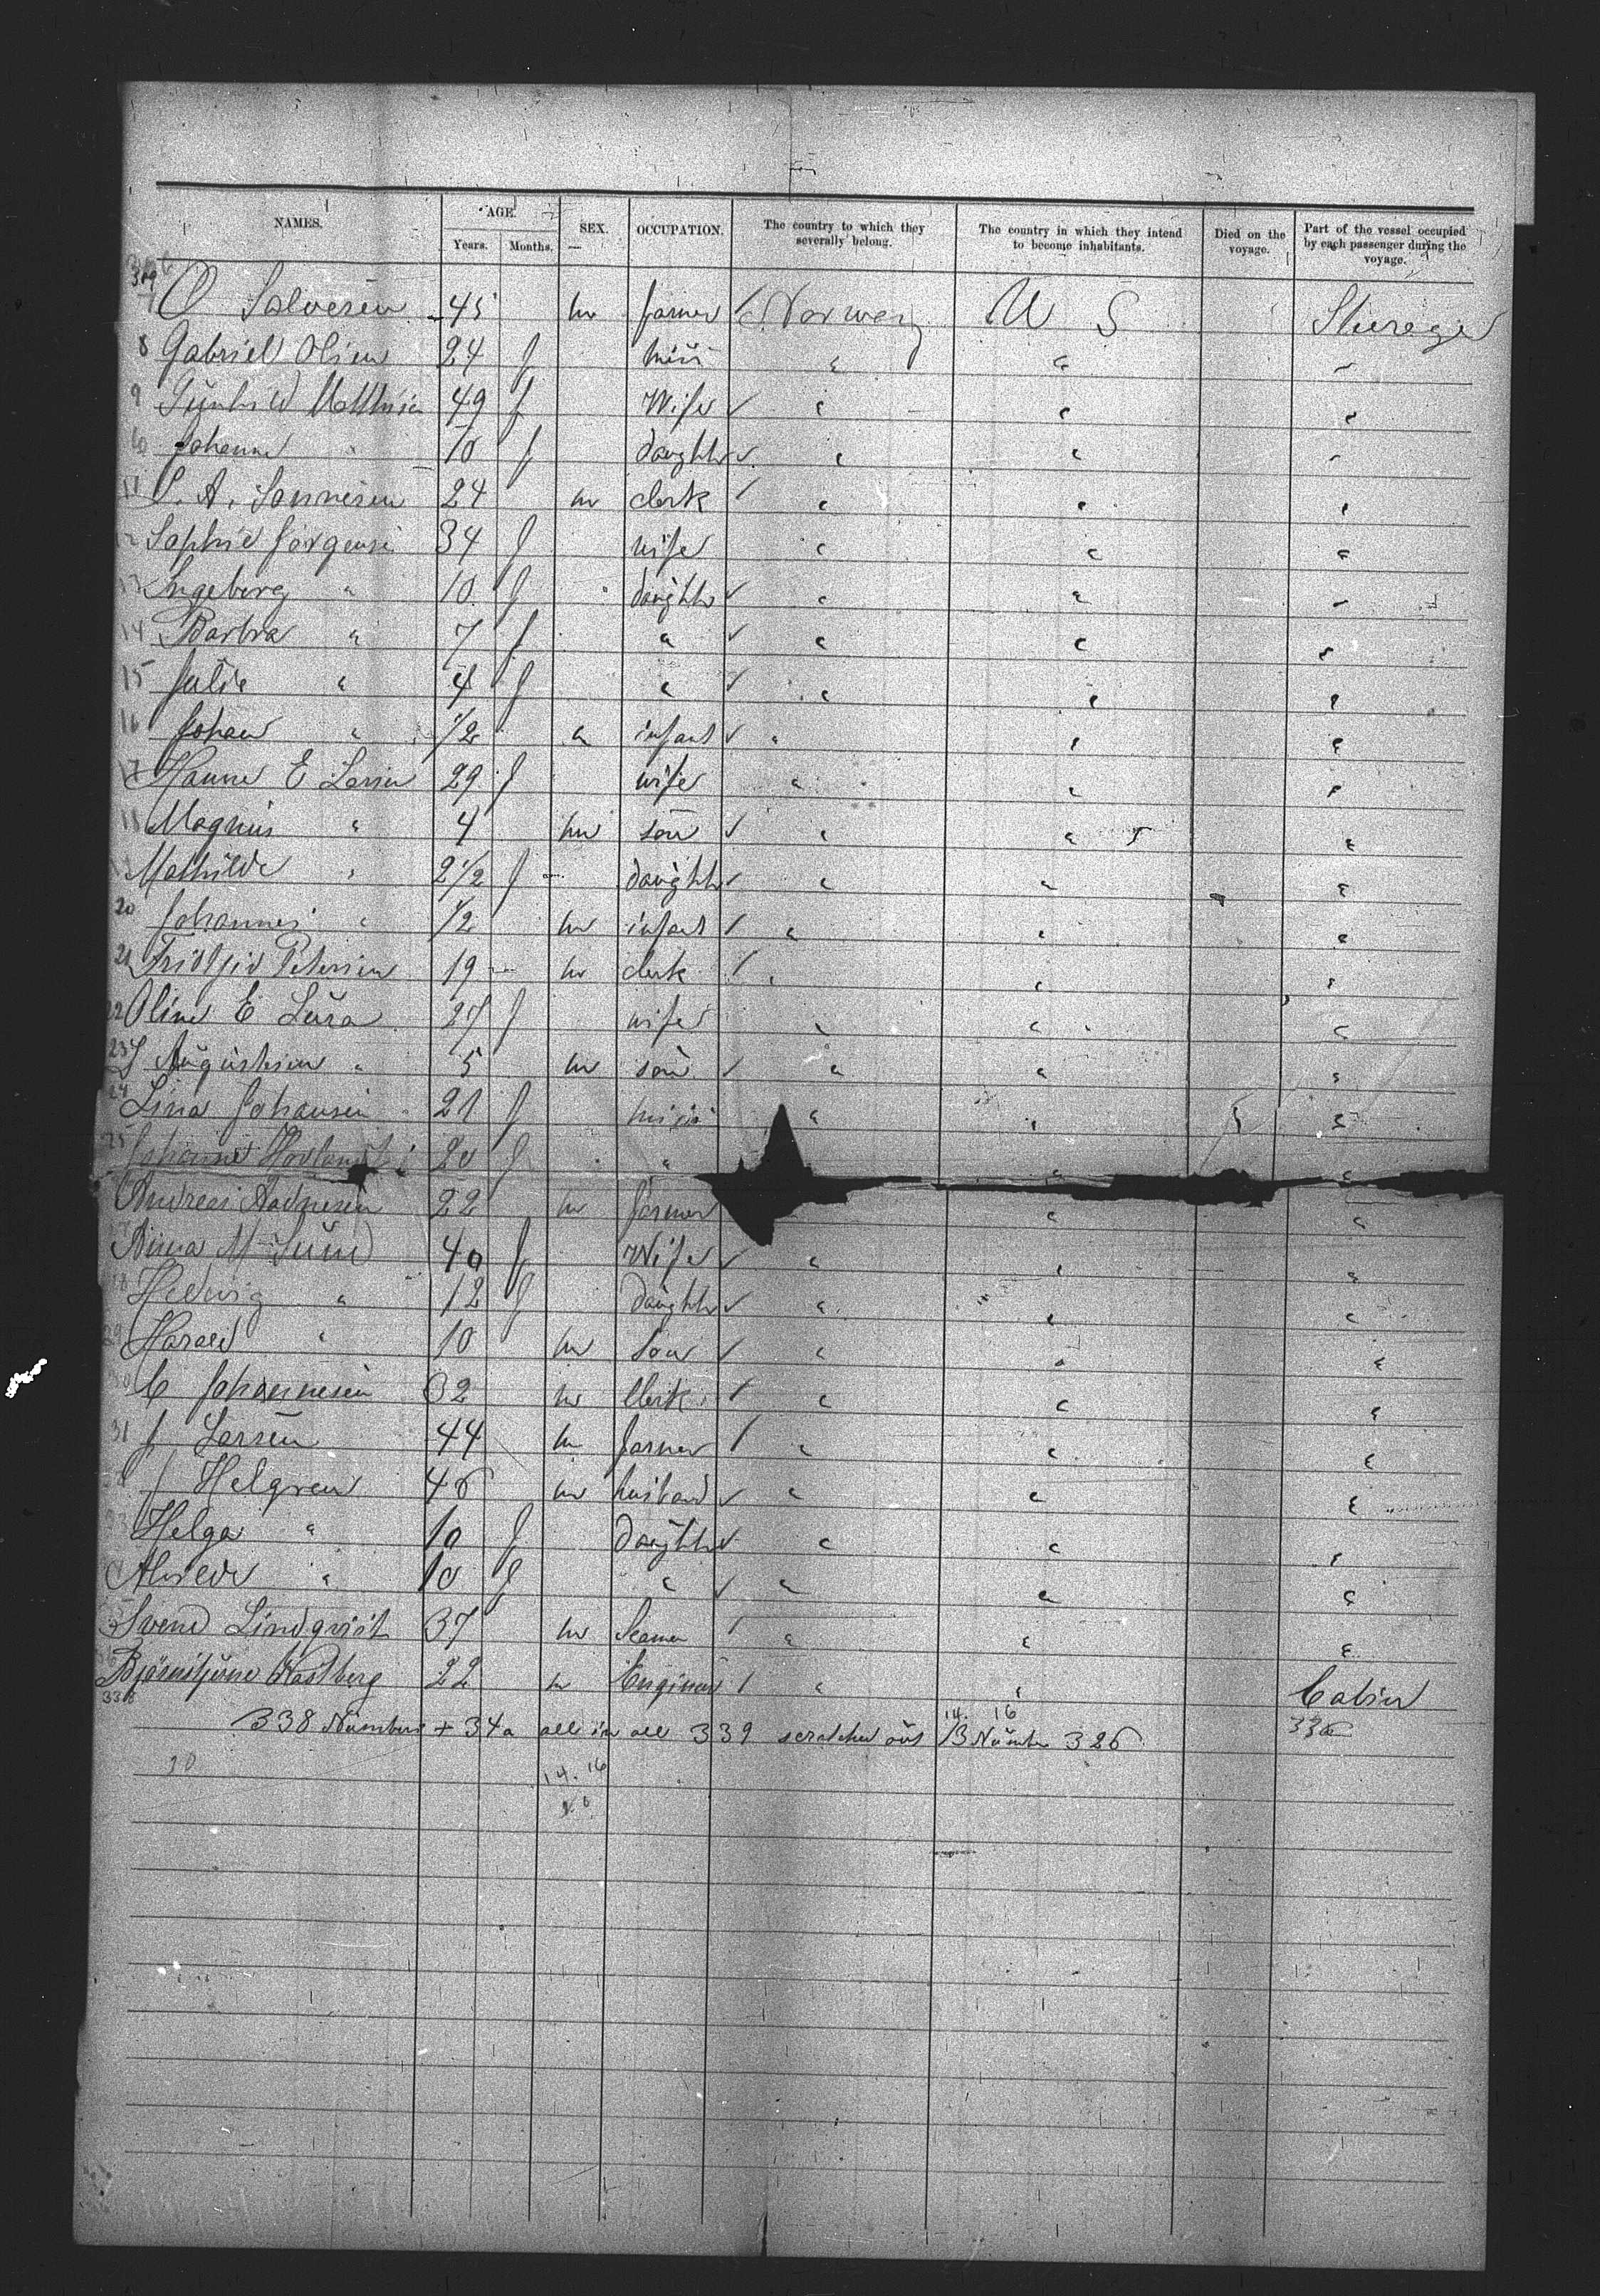 NAMES. AGE. Years. Months. SEX. OCCUPATION. The country to which they severally belong. The country in which they intend to become inhabitants. Died on the voyage. Part of the vessel occupied by each passenger during the voyage.
7 O Salvesen 45 m farmer Norway U S Steerage
8 Gabriel Olsen 24 f miss " " "
9 49 f Wife " " "
10 Johanne " 10 f daughter " " "
11 A. 24 m clerk " " "
12 Sophie Jörgensen 34 f wife " " "
13 Ingeborg " 10 f daughter " " "
14 Barbra " 7 f " " " "
15 Julie " 4 f " " " "
16 Johan " 1/2 m infant " " "
17 Hanne E Larsen 29 f wife " " "
18 Magnus " 4 m son " " "
19 Mathilde " 2 1/2 f daughter " " "
20 Johannes " 1/2 m infant " " "
21 Petersen 19 m clerk " " "
22 Oline E Lura 27 f wife " " "
23 " 5 m son " " "
24 Lina Johansen 21 f miss " " "
25 Johanne 20 f " " "
Andreas Aadnesen 22 m farmer " "
Anna M Sund 40 f Wife " " "
28 Hedwig " 12 f daughter " " "
29 Harald " 10 m son " " "
30 C Johannesen 32 m Clerk " " "
31 J Larsen 44 m farmer " " "
J Helgren 46 m husband " " "
Helga " 10 f daughter " " "
" 10 f " " " "
Svend Lindqvist 37 m Seaman " " "
22 m Engineer " " Cabin
338
14. 16
338 Numbers + 34a all in all 339 scratched out 13 Number 326
336
14. 16